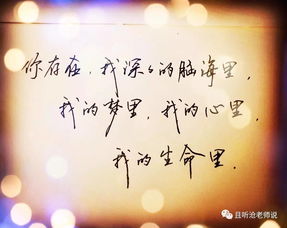 你存在，我深々的脑海里，
我的梦里，我的心里，
我的生命里．
且听沧老师说